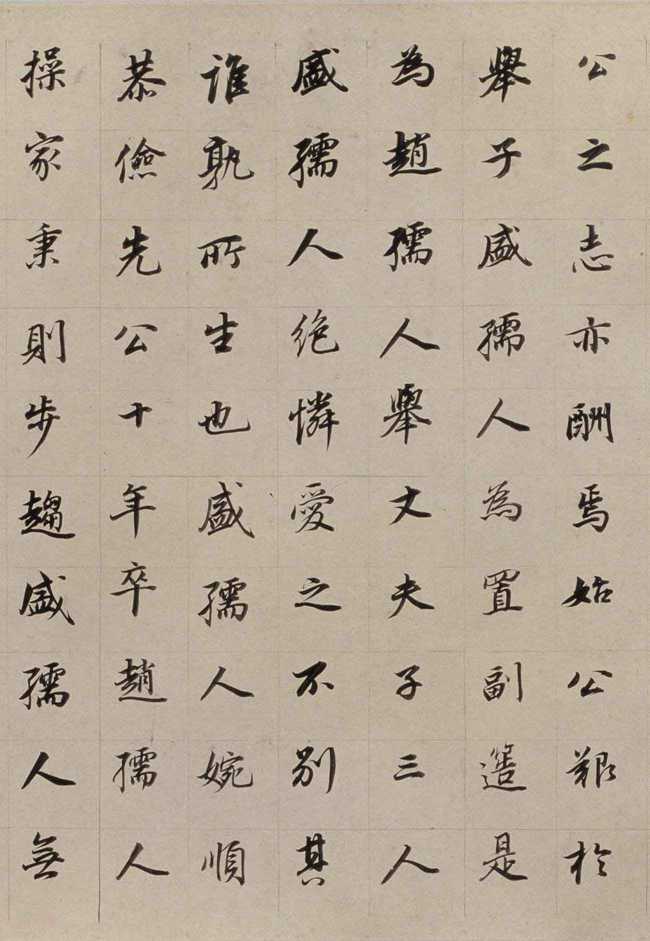 公之志亦酬焉始公艱於
舉子盛孺人為置副簉是
為趙孺人舉丈夫子三人
盛孺人絶憐愛之不別其
誰孰所生也盛孺人婉順
恭儉先公十年卒趙孺人
操家秉則步趨盛孺人無